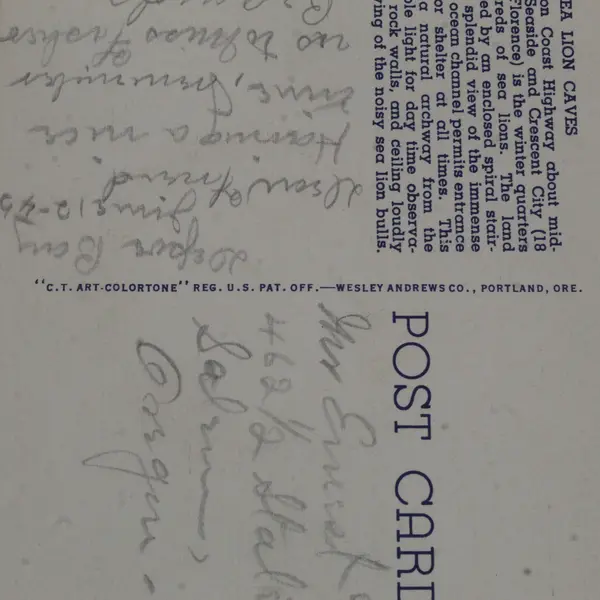 EA LION CAVES
on Coast Highway about mid-
Seaside and Crescent City (18
Florence) is the winter quarters
reds of sea lions. The land
ed by an enclosed spiral stair-
splendid view of the immense
ocean channel permits entrance
or shelter at all times. This
a natural archway from the
ble light for day time observa-
rock walls, and ceiling loudly
ying of the noisy sea lion bulls.
Depoe Bay
June 12-45
Dear friend
Having a nice
time, Remember
us to Miss Fisher
"C.T. ART-COLORTONE" REG. U.S. PAT. OFF.—WESLEY ANDREWS CO., PORTLAND, ORE.
POST CARD
Mr Ernest
462 1/2 Stat
Salem,
Oregon -